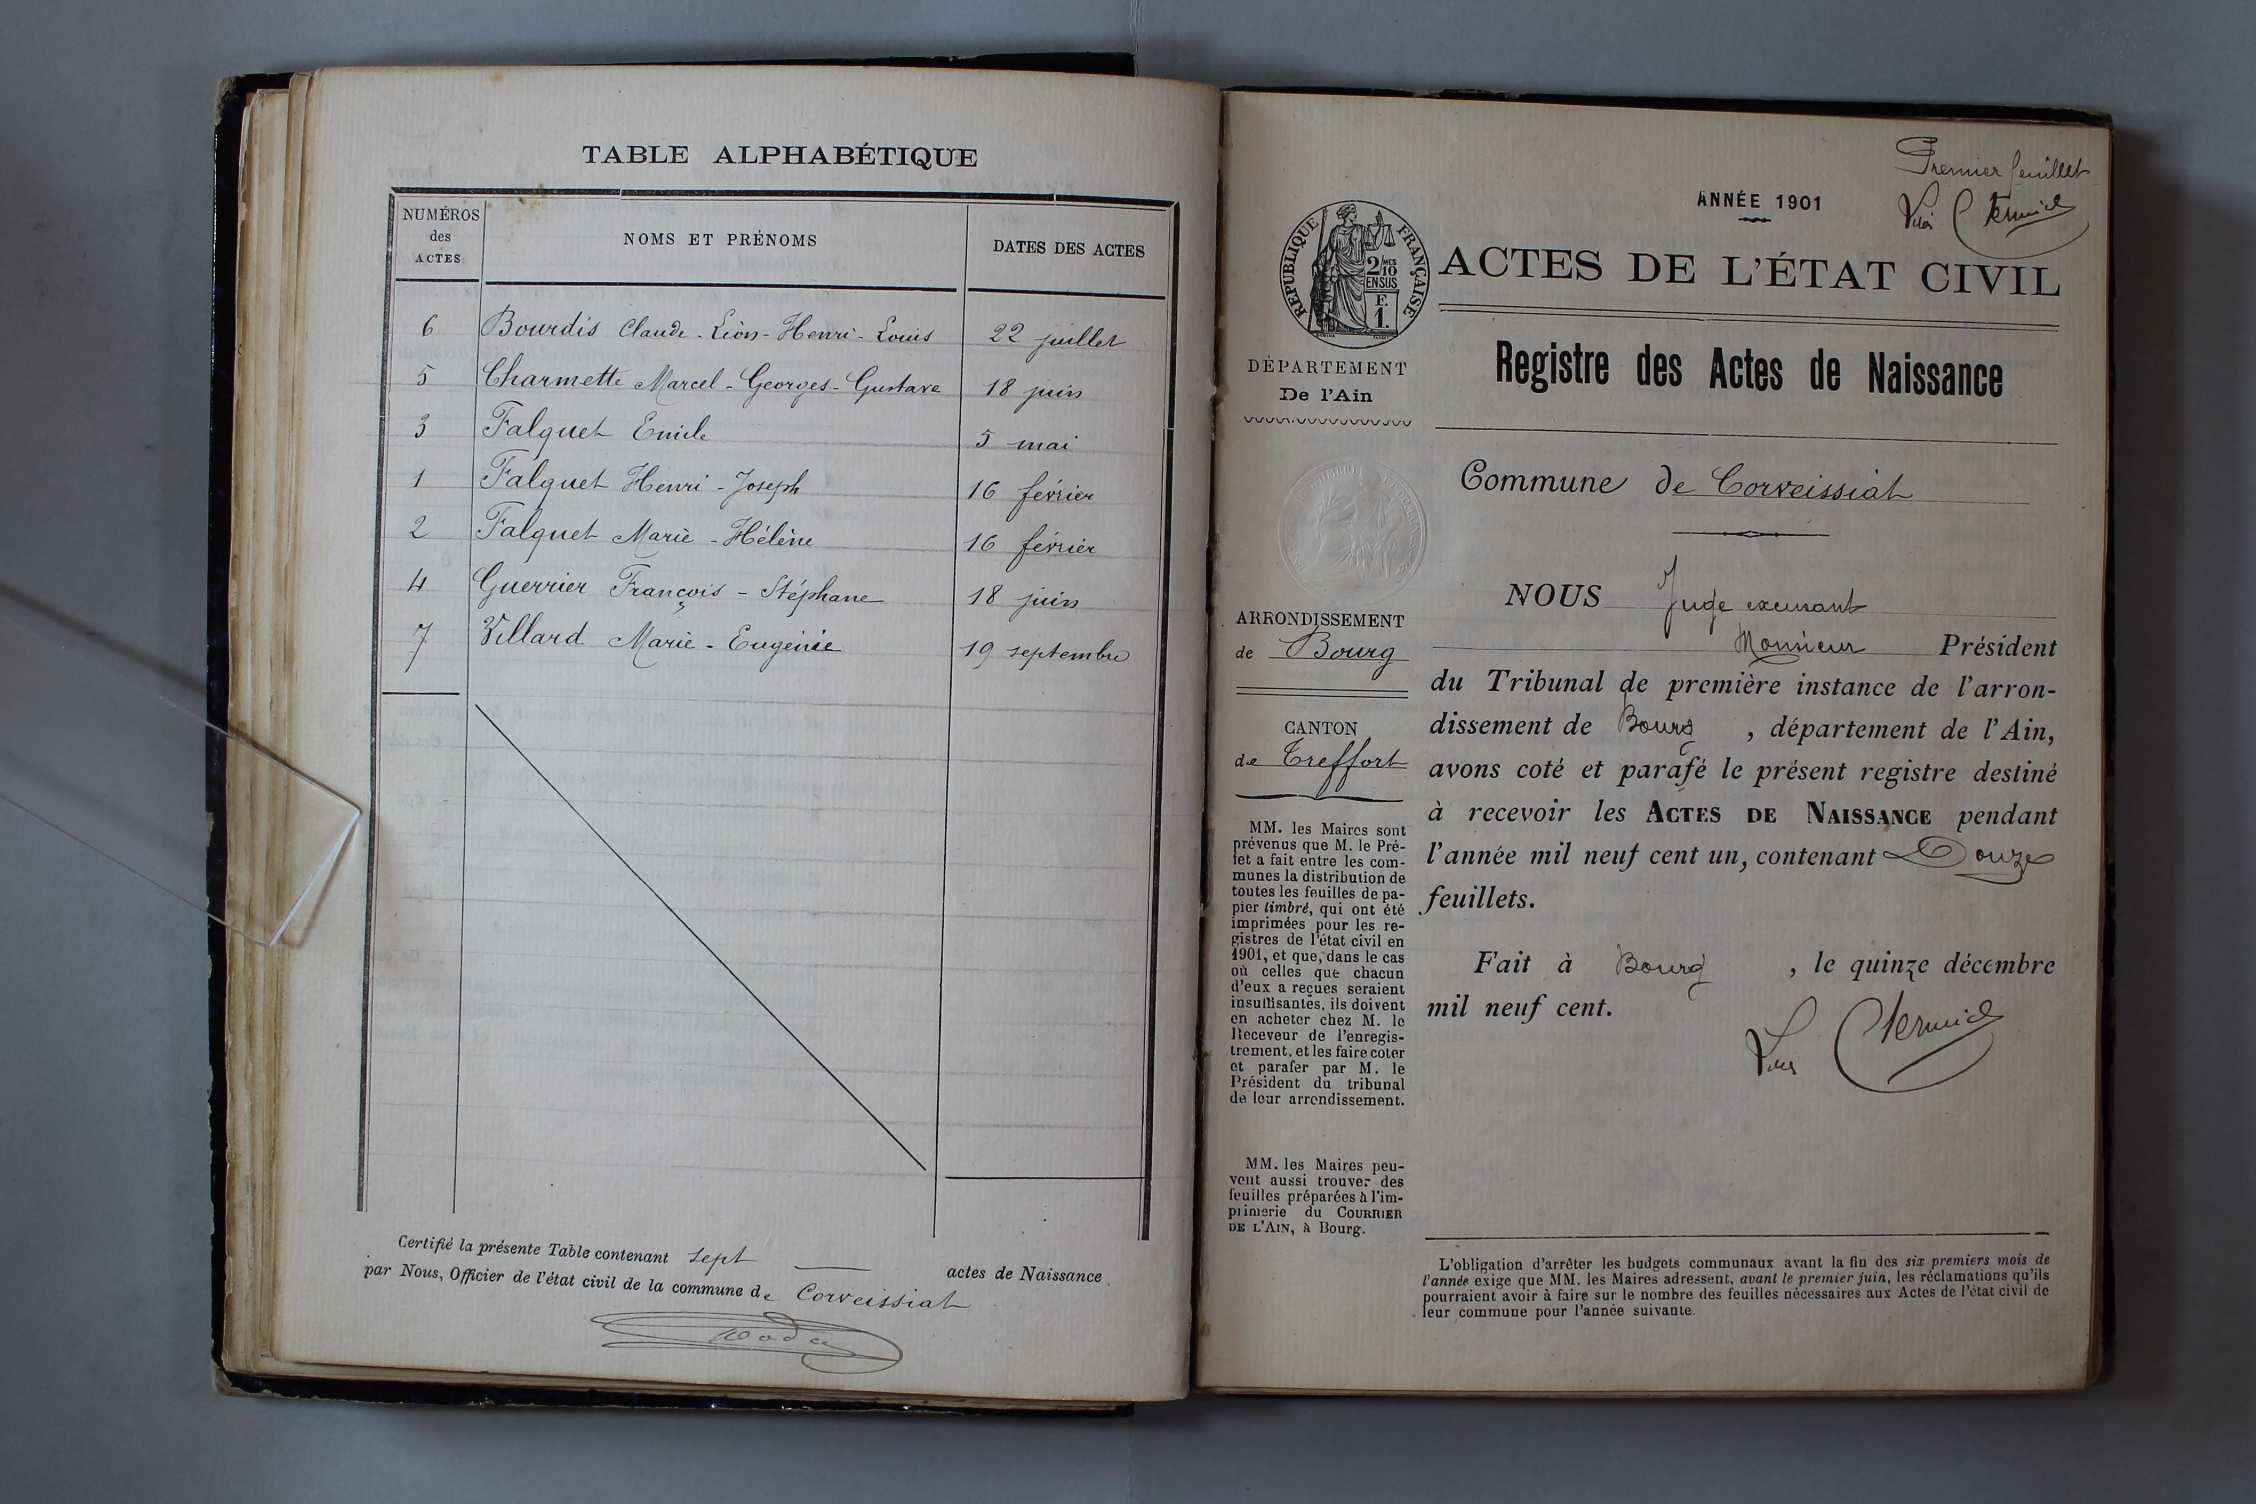 TABLE ALPHABÉTIQUE
NUMÉROS
des
ACTES
NOMS ET PRÉNOMS
DATES DES ACTES
6 Bourdis Claude-Léon-Henri-Louis 22 juillet
5 Charmette Marcel-Georges-Gustave 18 juin
3 Falquet Emile 5 mai
1 Falquet Henri-Joseph 16 février
2 Falquet Marie-Hélène 16 février
4 Guerrier François-Stéphane 18 juin
7 Villard Marie-Eugénie 19 septembre
Certifié la présente Table contenant sept actes de Naissance
par Nous, Officier de l'état civil de la commune de Corveissiat
Premier feuillet
ANNÉE 1901
RÉPUBLIQUE FRANÇAISE
2/10 MES
EN SUS
F.
1.
ACTES DE L'ÉTAT CIVIL
DÉPARTEMENT
De l'Ain
Registre des Actes de Naissance
Commune de Corveissiat
ARRONDISSEMENT
de Bourg
CANTON
de Treffort
MM. les Maires sont
prévenus que M. le Pré-
fet a fait entre les com-
munes la distribution de
toutes les feuilles de pa-
pier timbré, qui ont été
imprimées pour les re-
gistres de l'état civil en
1901, et que, dans le cas
où celles que chacun
d'eux a reçues seraient
insuffisantes, ils doivent
en acheter chez M. le
Receveur de l'enregis-
trement, et les faire coter
et parafer par M. le
Président du tribunal
de leur arrondissement.
MM. les Maires peu-
vent aussi trouver des
feuilles préparées à l'im-
primerie du COURRIER
DE L'AIN, à Bourg.
NOUS Juge
Monsieur Président
du Tribunal de première instance de l'arron-
dissement de Bourg , département de l'Ain,
avons coté et parafé le présent registre destiné
à recevoir les ACTES DE NAISSANCE pendant
l'année mil neuf cent un, contenant Douze
feuillets.
Fait à Bourg , le quinze décembre
mil neuf cent.
L'obligation d'arrêter les budgets communaux avant la fin des six premiers mois de
l'année exige que MM. les Maires adressent, avant le premier juin, les réclamations qu'ils
pourraient avoir à faire sur le nombre des feuilles nécessaires aux Actes de l'état civil de
leur commune pour l'année suivante.